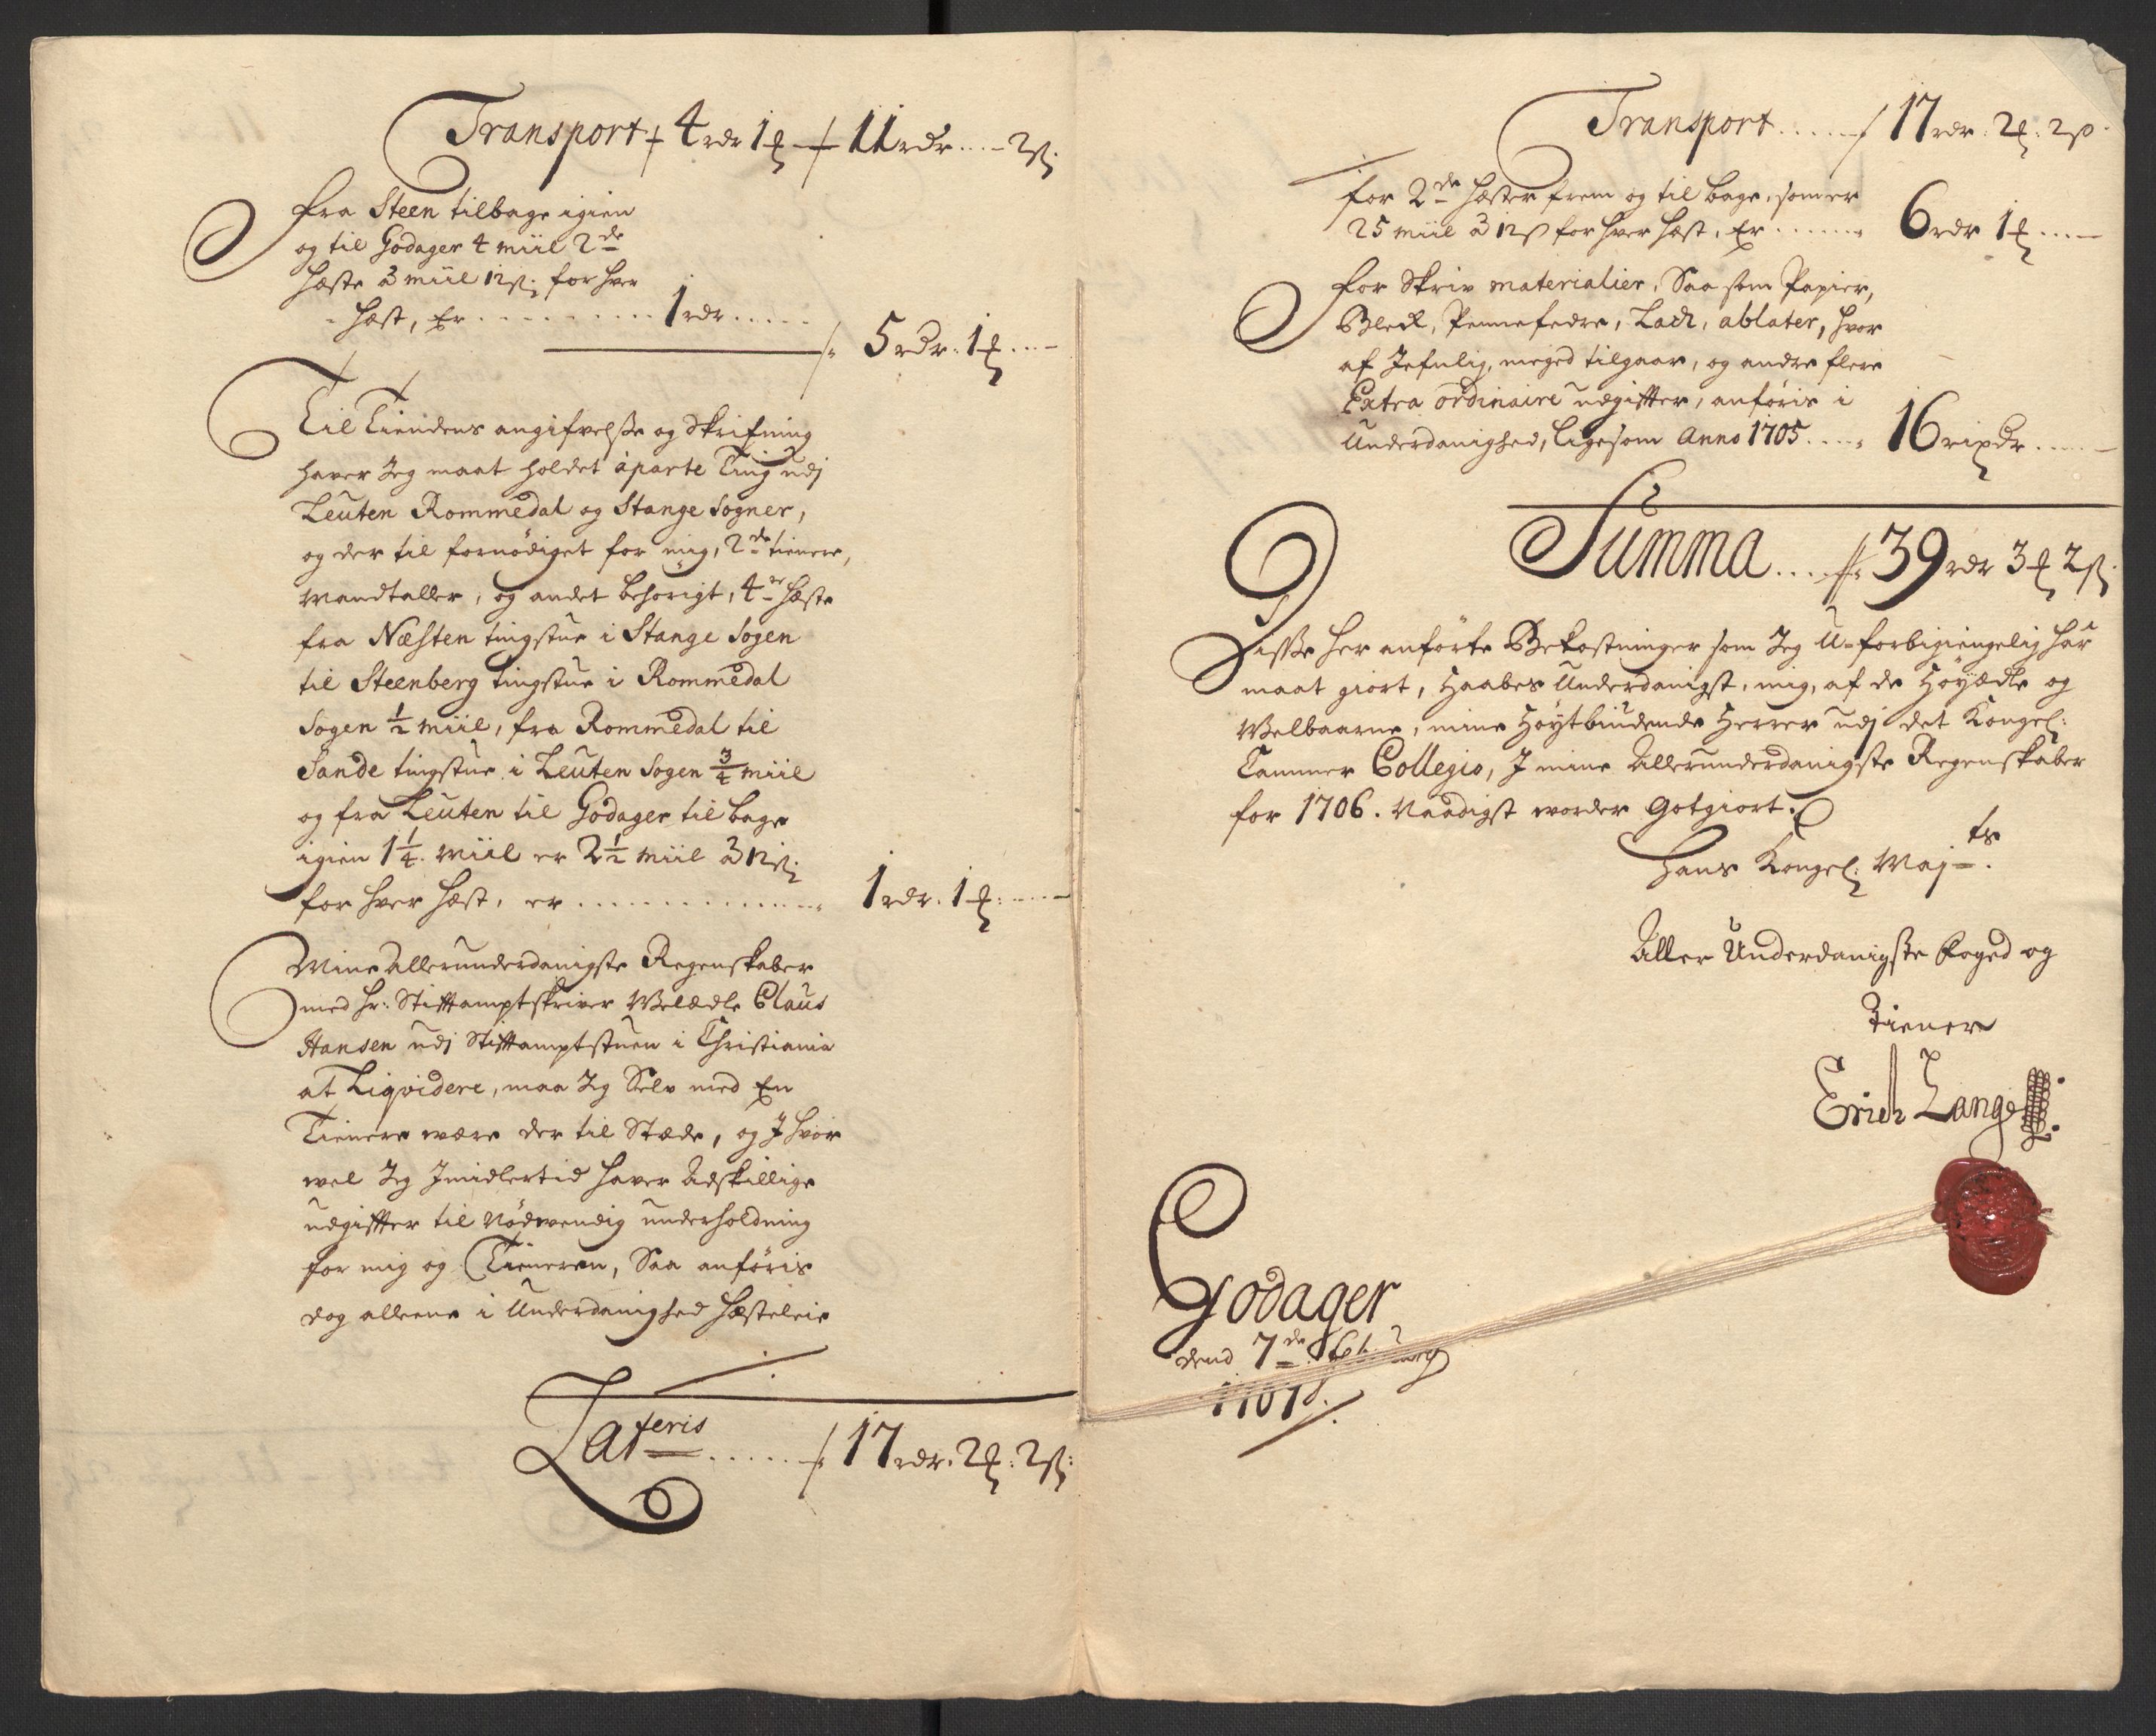 Transport / 4 rdr 1 ℔ — / 11 rdr .... 2 ß:
fra Steen tilbage igien
og til Godager 4 miil 2de
hæste à miil 12 ß: for hver
hæst, Er ......... 1 rdr .....
/ 5 rdr. 1 ℔ ....
Til Tiendens angifvelsse og Skrifning
haver Jeg maat holdet aparte Ting udj
Leuten Rommedal og Stange Sogner,
og der til fornödiget for mig, 2de tienere,
mandtaller, og andet behörigt, 4re hæste
fra Næsten tingstue i Stange Sogen
til Steenberg tingstue i Rommedal
Sogen ½ miil, fra Rommedal til
Sande tingstue i Leuten Sogen ¾ miil
og fra Leuten til Godager tilbage
igien 1¼. miil er 2½ miil à 12 ß:
for hver hæst, er ............ 1 rdr. 1 ℔: ....
Mine Allerunderdanigste Regenskaber
med Hr: Stiftamptskriver Welædle Claus
Hansen udj Stiftamptstuen i Christiania
at Liqvidere, maa Jeg Selv med En
Tienere være der til Stæde, og J hvor
vel Jeg Jmidlertid haver Adskillige
udgiffter til Nödvendig underholdning
for mig og Tieneren, Saa anföris
dog alleene i Underdanighed hæsteleie
Lateris ..... / 17 rdr. 2 ℔: 2 ß:
Transport ..... / 17 rdr. 2 ℔: 2 ß.
for 2de hæster frem og tilbage, som er
25 miil à 12 ß for hver hæst, Er ...... 6 rdr 1 ℔ ....
for Skriv materialier, Saa som Papier,
Bleck, Pennefedre, Lack, ablater, hvor
af Jefnlig, meged tilgaar, og andre flere
Extra ordinaire udgiffter, anföris i
Underdanighed, ligesom Anno 1705 .... 16 rixdr .....
Summa .... // 39 rdr 3 ℔ 2 ß:
Disse her anförte Bekostninger som Jeg U-forbigiengelig har
maat giort, Haabes Underdanigst, mig, af de Höyædle og
Velbaarne, mine Höytbiudende Herrer udj det Kongel:
Cammer Collegio, J mine Allerunderdanigste Regenskaber
for 1706. Naadigst vorder Gotgiort.
Hans Kongel: Mayts.
Aller Underdanigste Foged og
Tiener
Erich Lange
Godager
dend 7de
1707.